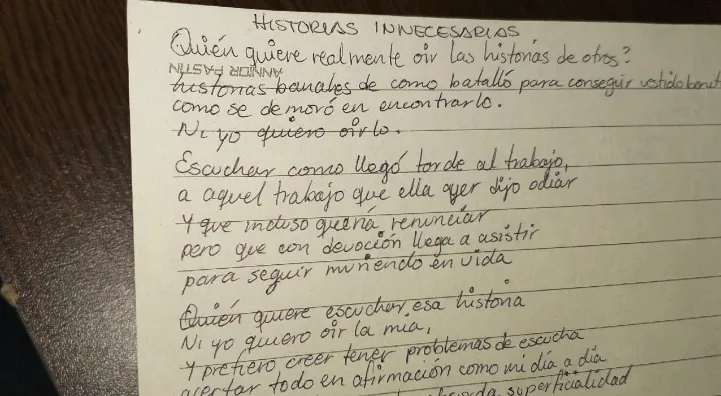 HISTORIAS INNECESARIAS
Quién quiere realmente oir las historias de otros?
ANNOR PASTIN
historias banales de como batalló para conseguir vestido bonit
como se demoró en encontrarlo.
Ni yo quiero oirlo.
Escuchar como llegó tarde al trabajo,
a aquel trabajo que ella ayer dijo odiar
Y que incluso quería renunciar
pero que con devoción llega a asistir
para seguir muriendo en vida
Quién quiere escuchar esa historia
Ni yo quiero oir la mía,
Y prefiero creer tener problemas de escucha
acertar todo en afirmación como mi día a día
superficialidad